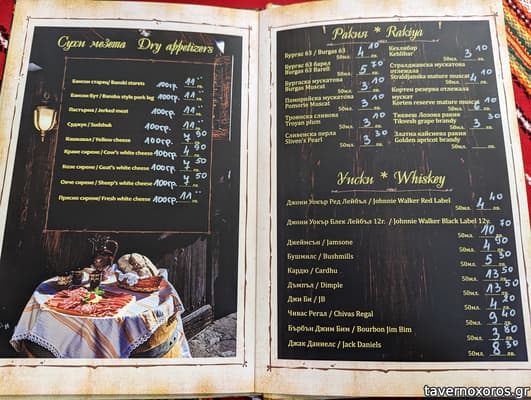 Сухи мезета Dry appetizers
Бански старец/ Banski starets 100гр. 11.-
Бански бут / Bansko style pork leg 100гр. 11.-
Пастърма / Jerked meat 100гр. 11.-
Суджук / Sudzhuk 100гр. 11.-
Кашкавал / Yellow cheese 100гр. 4 90
Краве сирене / Cow's white cheese 100гр. 4 50
Козе сирене / Goat's white cheese 100гр. 7 50
Овче сирене / Sheep's white cheese 100гр. 4 90
Прясно сирене/ Fresh white cheese 100гр. 11.-
Ракия * Rakiya
Бургас 63 / Burgas 63 50мл. 4 10
Бургас 63 барел
Burgas 63 Barell 50мл. 5 70
Бургаска мускатова
Burgas Muscat 50мл. 3 10
Поморийска мускатова
Pomorie Muscat 50мл. 3 10
Троянска сливова
Troyan plum 50мл. 3 10
Сливенска перла
Sliven's Pearl 50мл. 3 10
Кехлибар
Kehlibar 50мл. 3 10
Стралджанска мускатова
отлежала
Straldjanska mature muscat 50мл. 4 10
Кортен резерва отлежала
мускат
Korten reserve mature muscat 50мл.
Тиквеш Лозова ракия
Tikvesh grape brandy 50мл. 3
Златна кайсиева ракия
Golden apricot brandy 50мл. 3
Уиски * Whiskey
Джони Уокър Ред Лейбъл / Johnnie Walker Red Label 50мл. 4 40
Джони Уокър Блек Лейбъл 12г. / Johnnie Walker Black Label 12y. 50мл. 10 70
Джеймсън / Jamsone 50мл. 4 90
Бушмилс / Bushmills 50мл. 5 50
Кардю / Cardhu 50мл. 13 50
Димпъл / Dimple 50мл. 13 50
Джи Би / JB 50мл. 4 20
Чивас Регал / Chivas Regal 50мл. 9 40
Бърбън Джим Бим / Bourbon Jim Bim 50мл. 3 80
Джак Даниелс / Jack Daniels 50мл. 8 30
tavernoxoros.gr